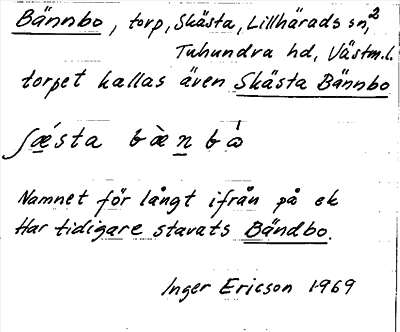 Bännbo, torp, Skästa, Lillhärads sn, 2
Tuhundra hd, Västm.l.
torpet kallas även Skästa Bännbo
ʃǽsta bὰnbɷ́
Namnet för långt ifrån på ek
Har tidigare stavats Bändbo.
Inger Ericson 1969